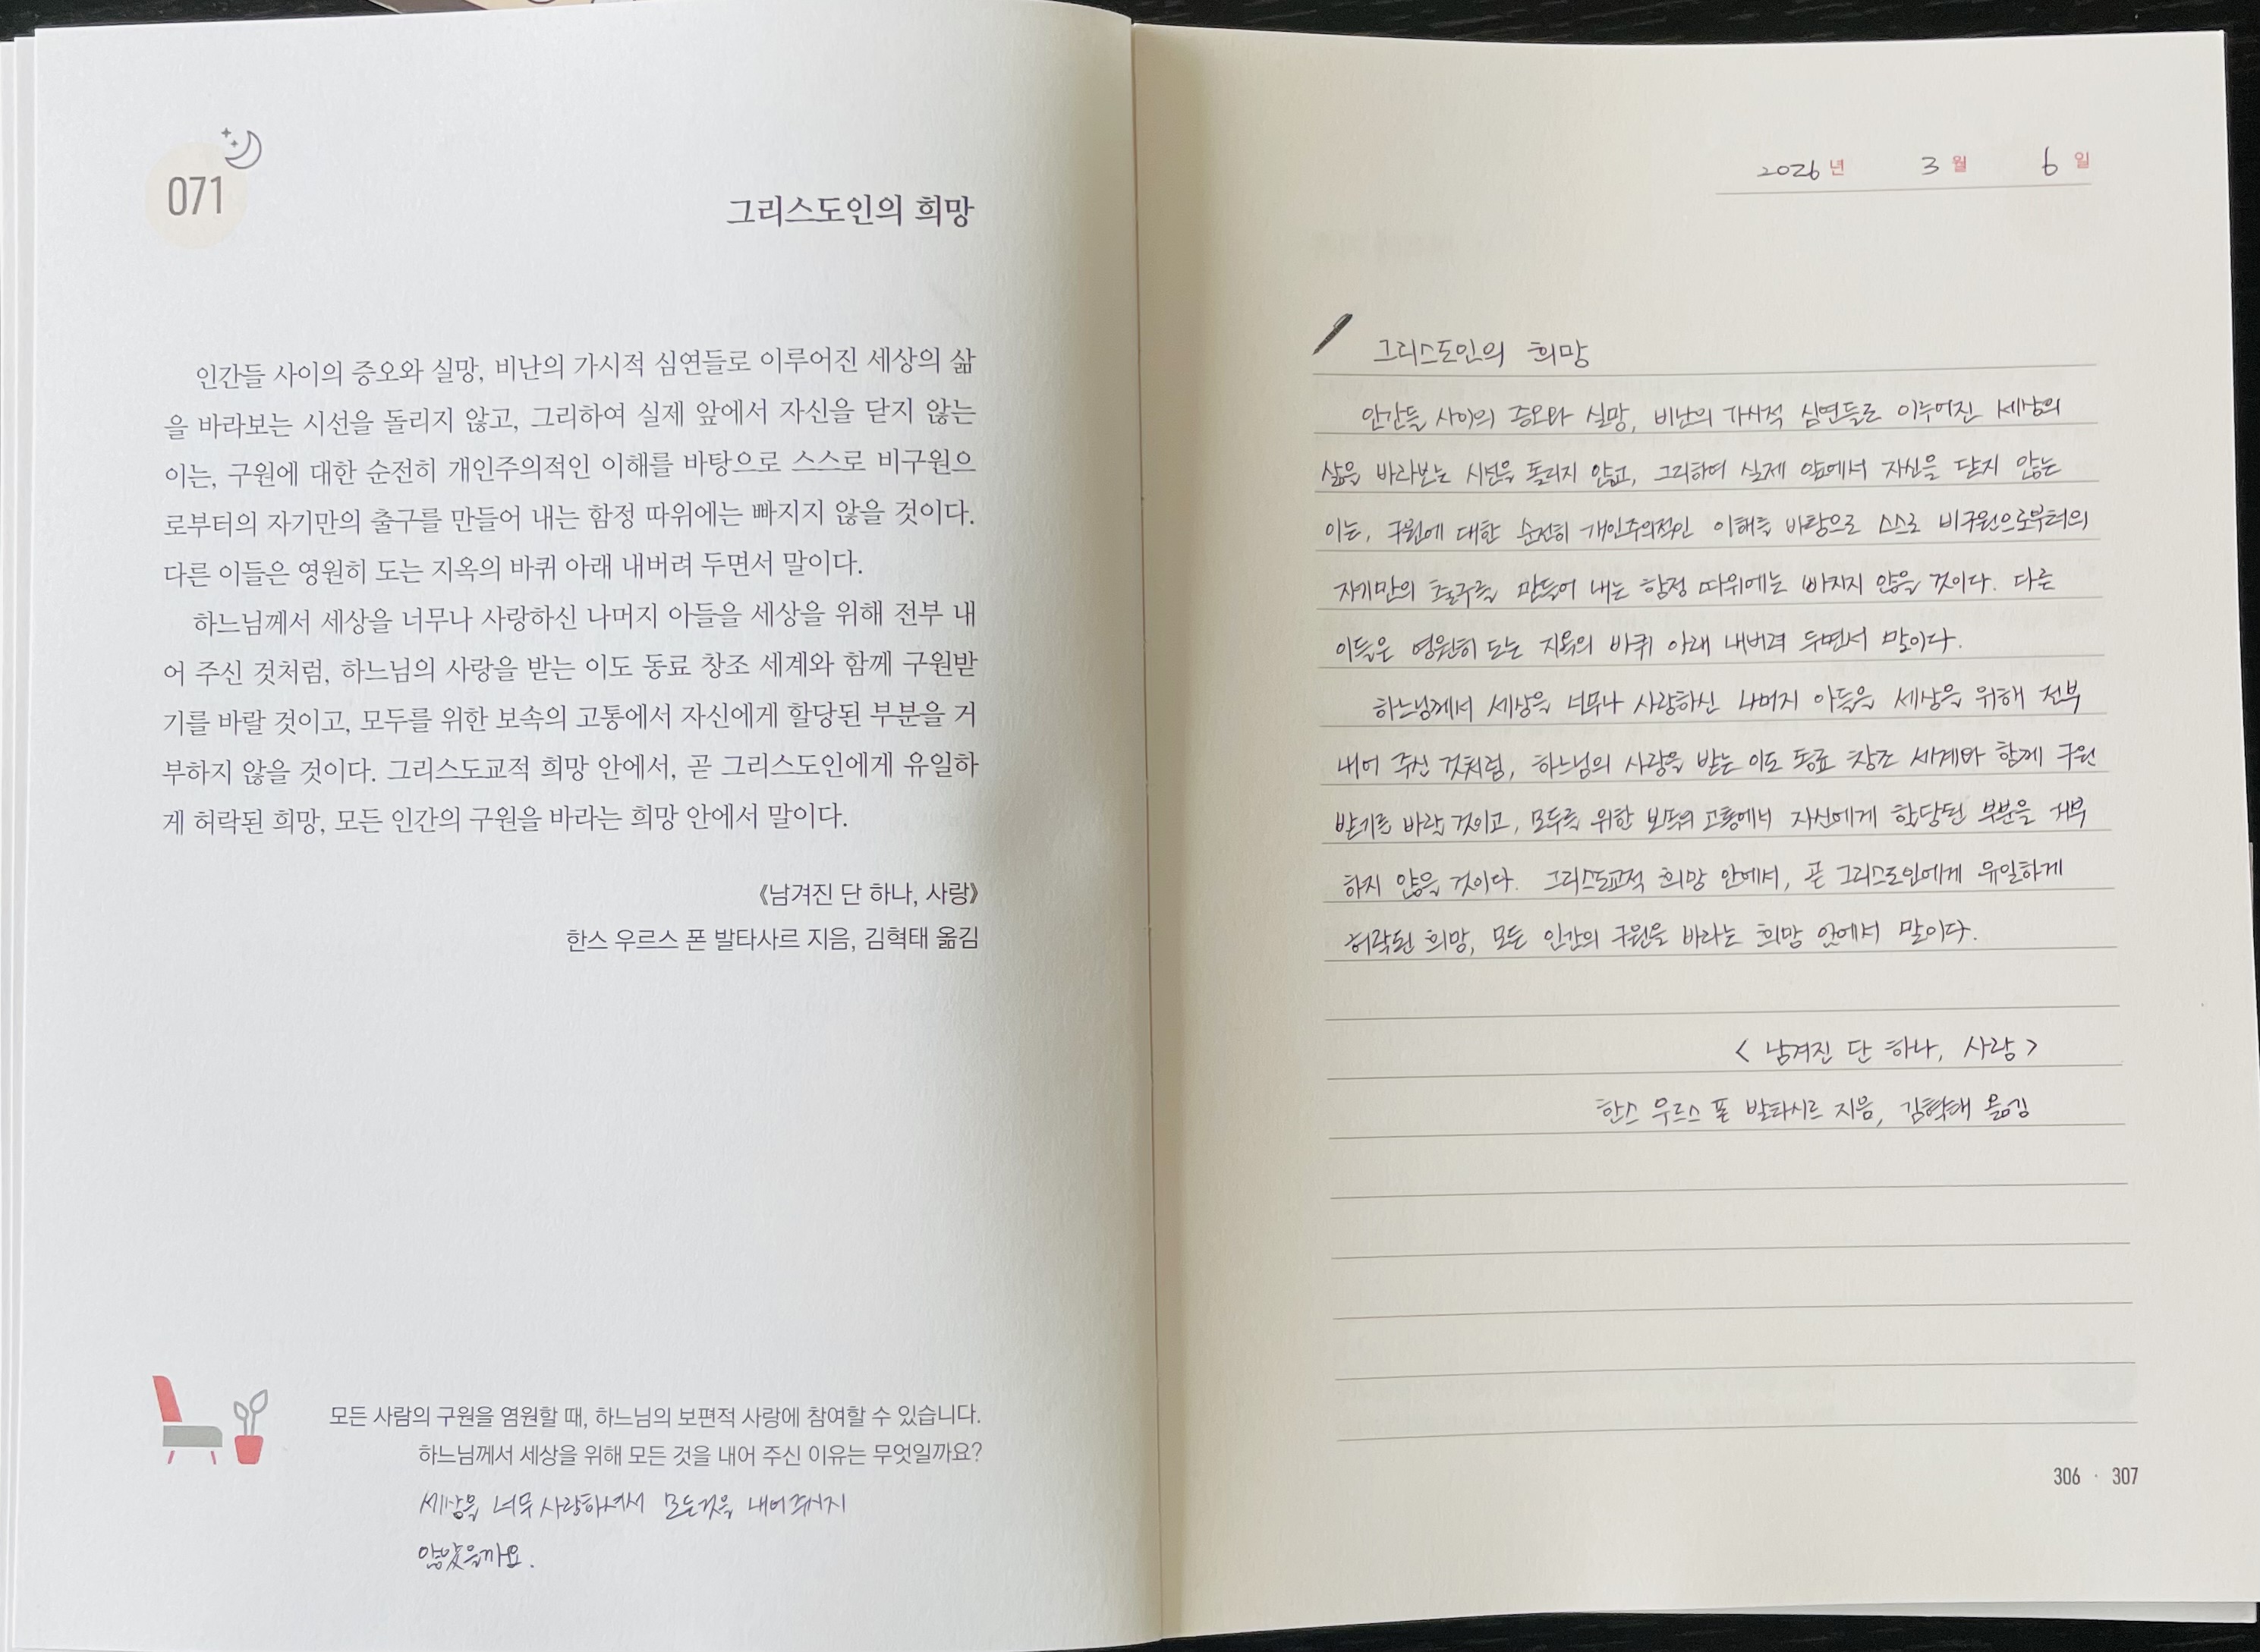 071
그리스도인의 희망
인간들 사이의 증오와 실망, 비난의 가시적 심연들로 이루어진 세상의 삶
을 바라보는 시선을 돌리지 않고, 그리하여 실제 앞에서 자신을 닫지 않는
이는, 구원에 대한 순전히 개인주의적인 이해를 바탕으로 스스로 비구원으
로부터의 자기만의 출구를 만들어 내는 함정 따위에는 빠지지 않을 것이다.
다른 이들은 영원히 도는 지옥의 바퀴 아래 내버려 두면서 말이다.
하느님께서 세상을 너무나 사랑하신 나머지 아들을 세상을 위해 전부 내
어 주신 것처럼, 하느님의 사랑을 받는 이도 동료 창조 세계와 함께 구원받
기를 바랄 것이고, 모두를 위한 보속의 고통에서 자신에게 할당된 부분을 거
부하지 않을 것이다. 그리스도교적 희망 안에서, 곧 그리스도인에게 유일하
게 허락된 희망, 모든 인간의 구원을 바라는 희망 안에서 말이다.
《남겨진 단 하나, 사랑》
한스 우르스 폰 발타사르 지음, 김혁태 옮김
모든 사람의 구원을 염원할 때, 하느님의 보편적 사랑에 참여할 수 있습니다.
하느님께서 세상을 위해 모든 것을 내어 주신 이유는 무엇일까요?
세상을 너무 사랑하셔서 모든것을 내어주시지
않았을까요.
2026년 3월 6일
그리스도인의 희망
인간들 사이의 증오와 실망, 비난의 가시적 심연들로 이루어진 세상의
삶을 바라보는 시선을 돌리지 않고, 그리하여 실제 앞에서 자신을 닫지 않는
이는, 구원에 대한 순전히 개인주의적인 이해를 바탕으로 스스로 비구원으로부터의
자기만의 출구를 만들어 내는 함정 따위에는 빠지지 않을 것이다. 다른
이들은 영원히 도는 지옥의 바퀴 아래 내버려 두면서 말이다.
하느님께서 세상을 너무나 사랑하신 나머지 아들을 세상을 위해 전부
내어 주신 것처럼, 하느님의 사랑을 받는 이도 동료 창조 세계와 함께 구원
받기를 바랄 것이고, 모두를 위한 보속의 고통에서 자신에게 할당된 부분을 거부
하지 않을 것이다. 그리스도교적 희망 안에서, 곧 그리스도인에게 유일하게
허락된 희망, 모든 인간의 구원을 바라는 희망 안에서 말이다.
< 남겨진 단 하나, 사랑 >
한스 우르스 폰 발타시르 지음, 김혁태 옮김
306 · 307